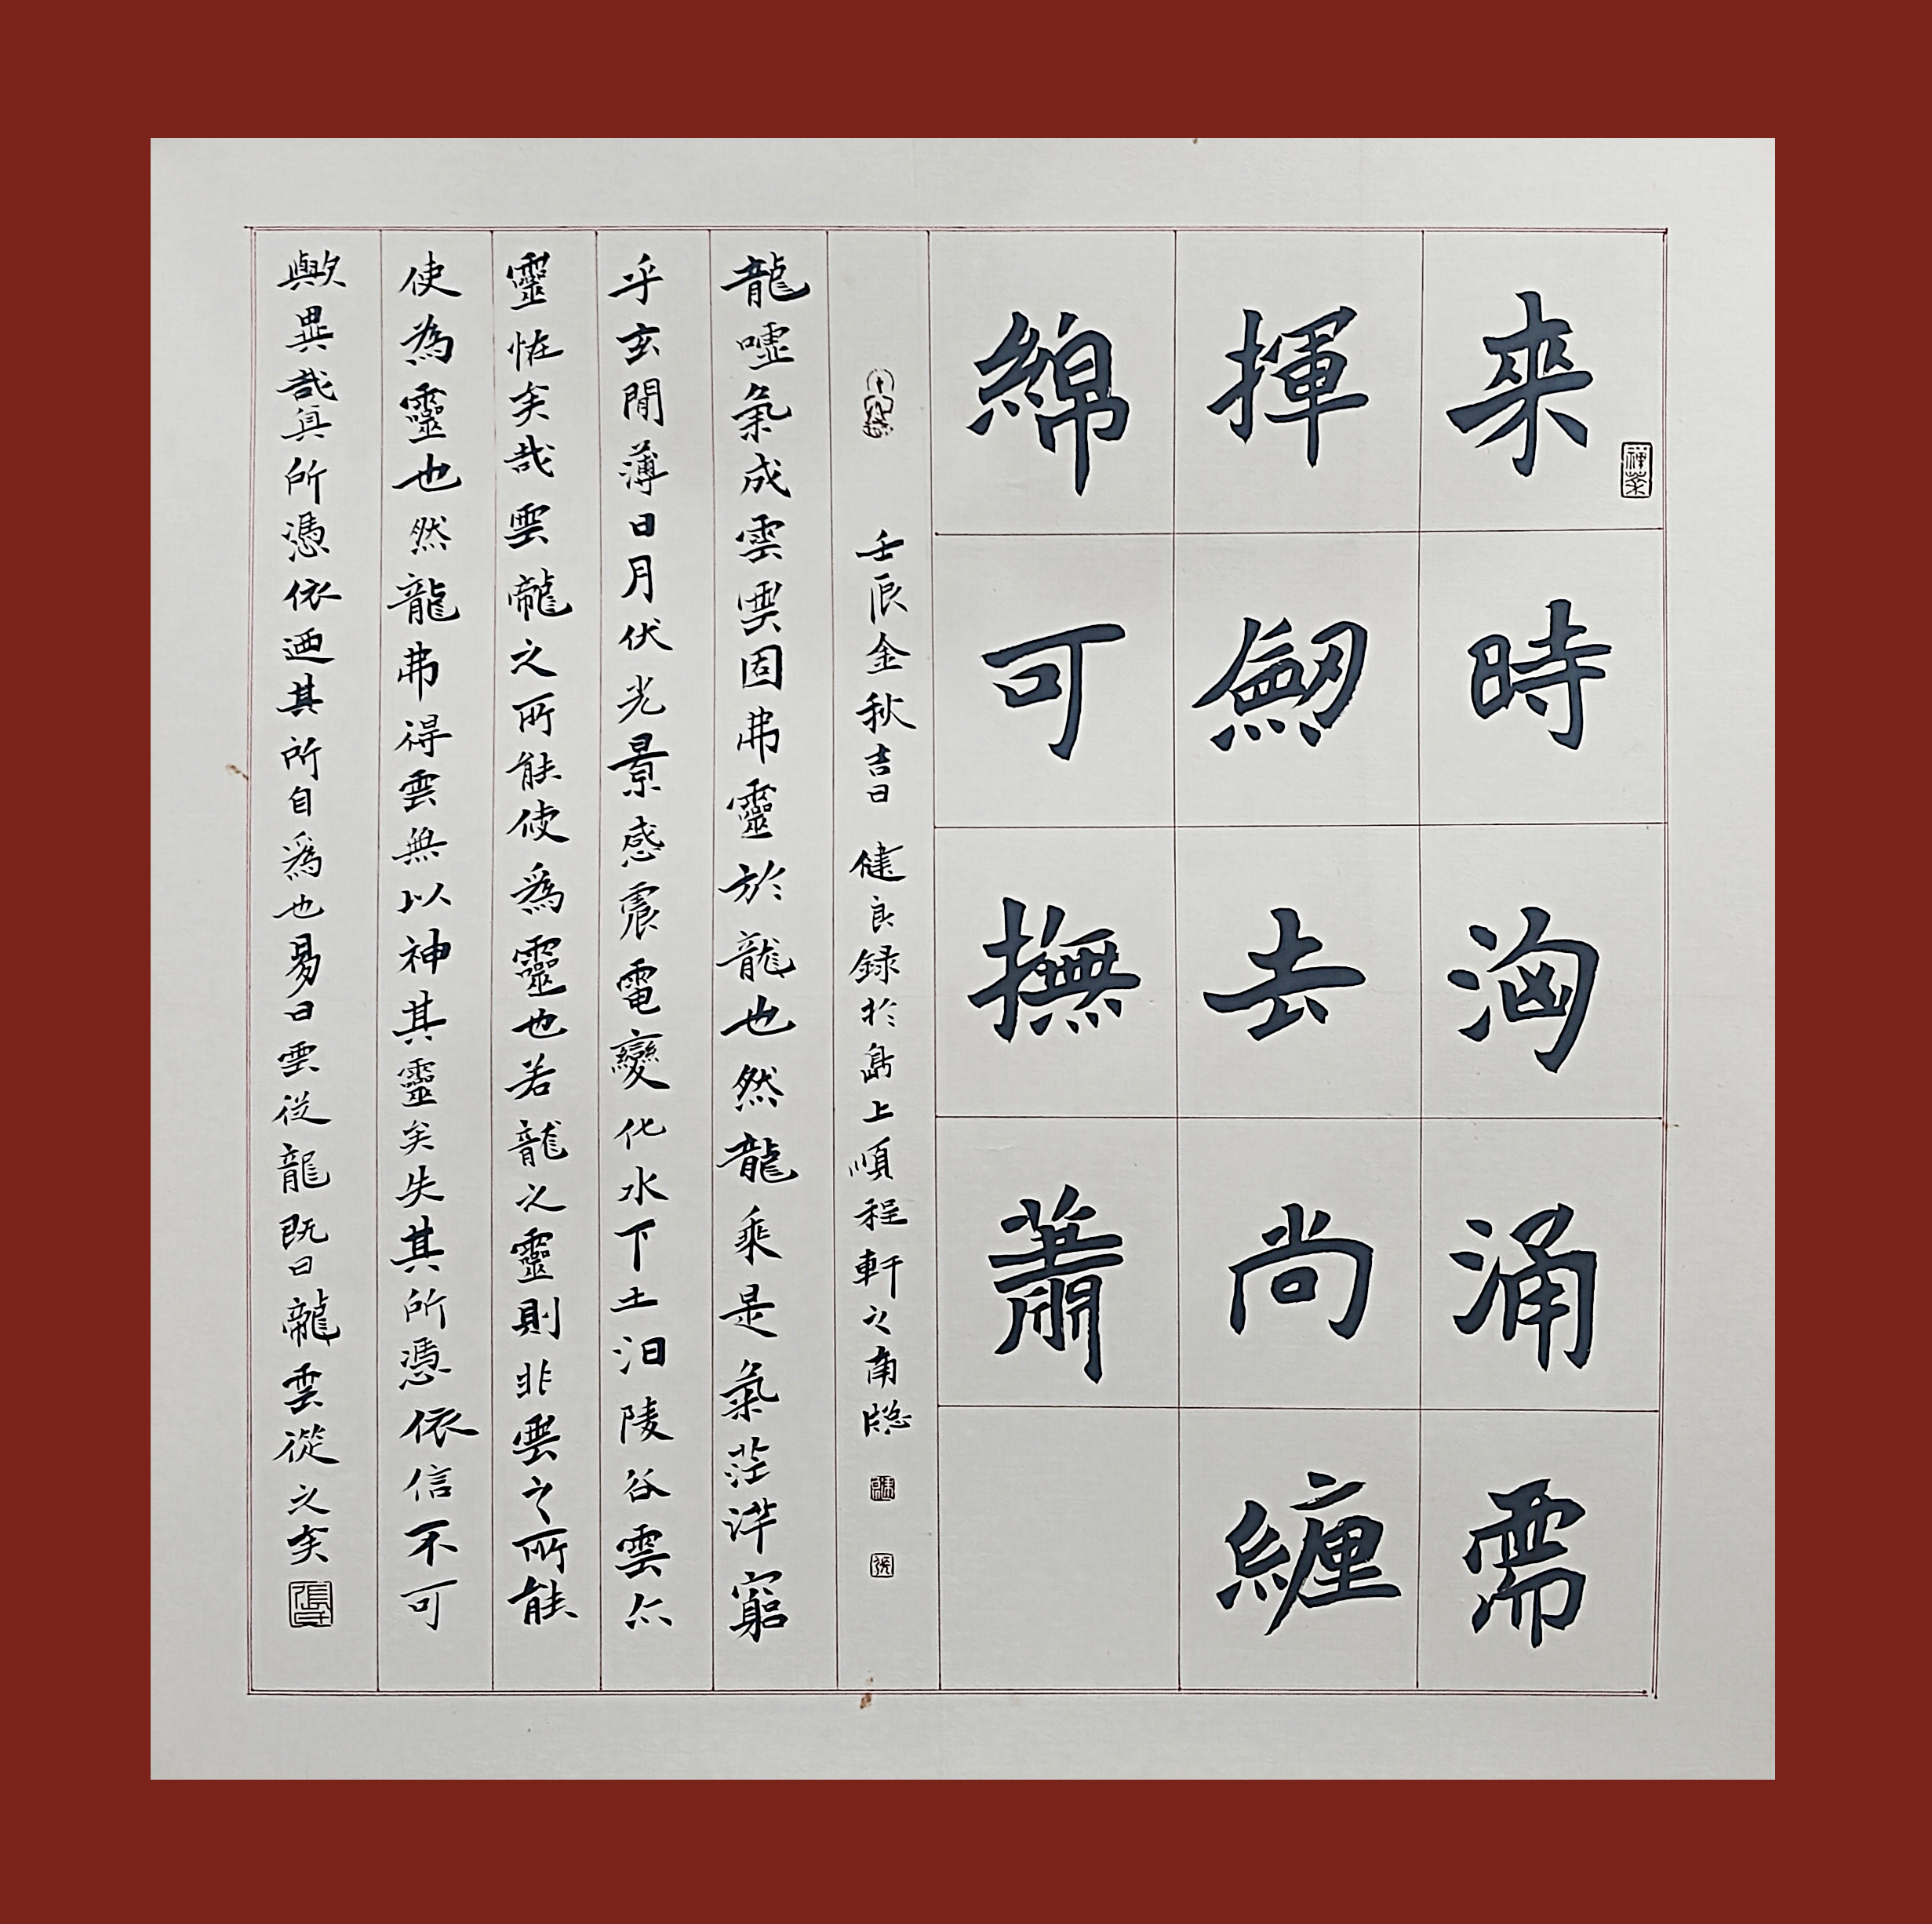 禪茶
来時洶涌需
揮劒去尚纏
綿可撫蕭
壬辰金秋吉日 健良録於島上順程軒之南牕
龍嘘氣成雲雲固弗靈於龍也然龍乘是氣茫洋窮
乎玄閒薄日月伏光景感震電變化水下土汩陵谷雲亦
靈恠矣哉雲龍之所能使爲靈也若龍之靈則非雲之所能
使為靈也然龍弗得雲無以神其靈矣失其所憑依信不可
歟異哉其所憑依迺其所自爲也易曰雲從龍既曰龍雲從之矣